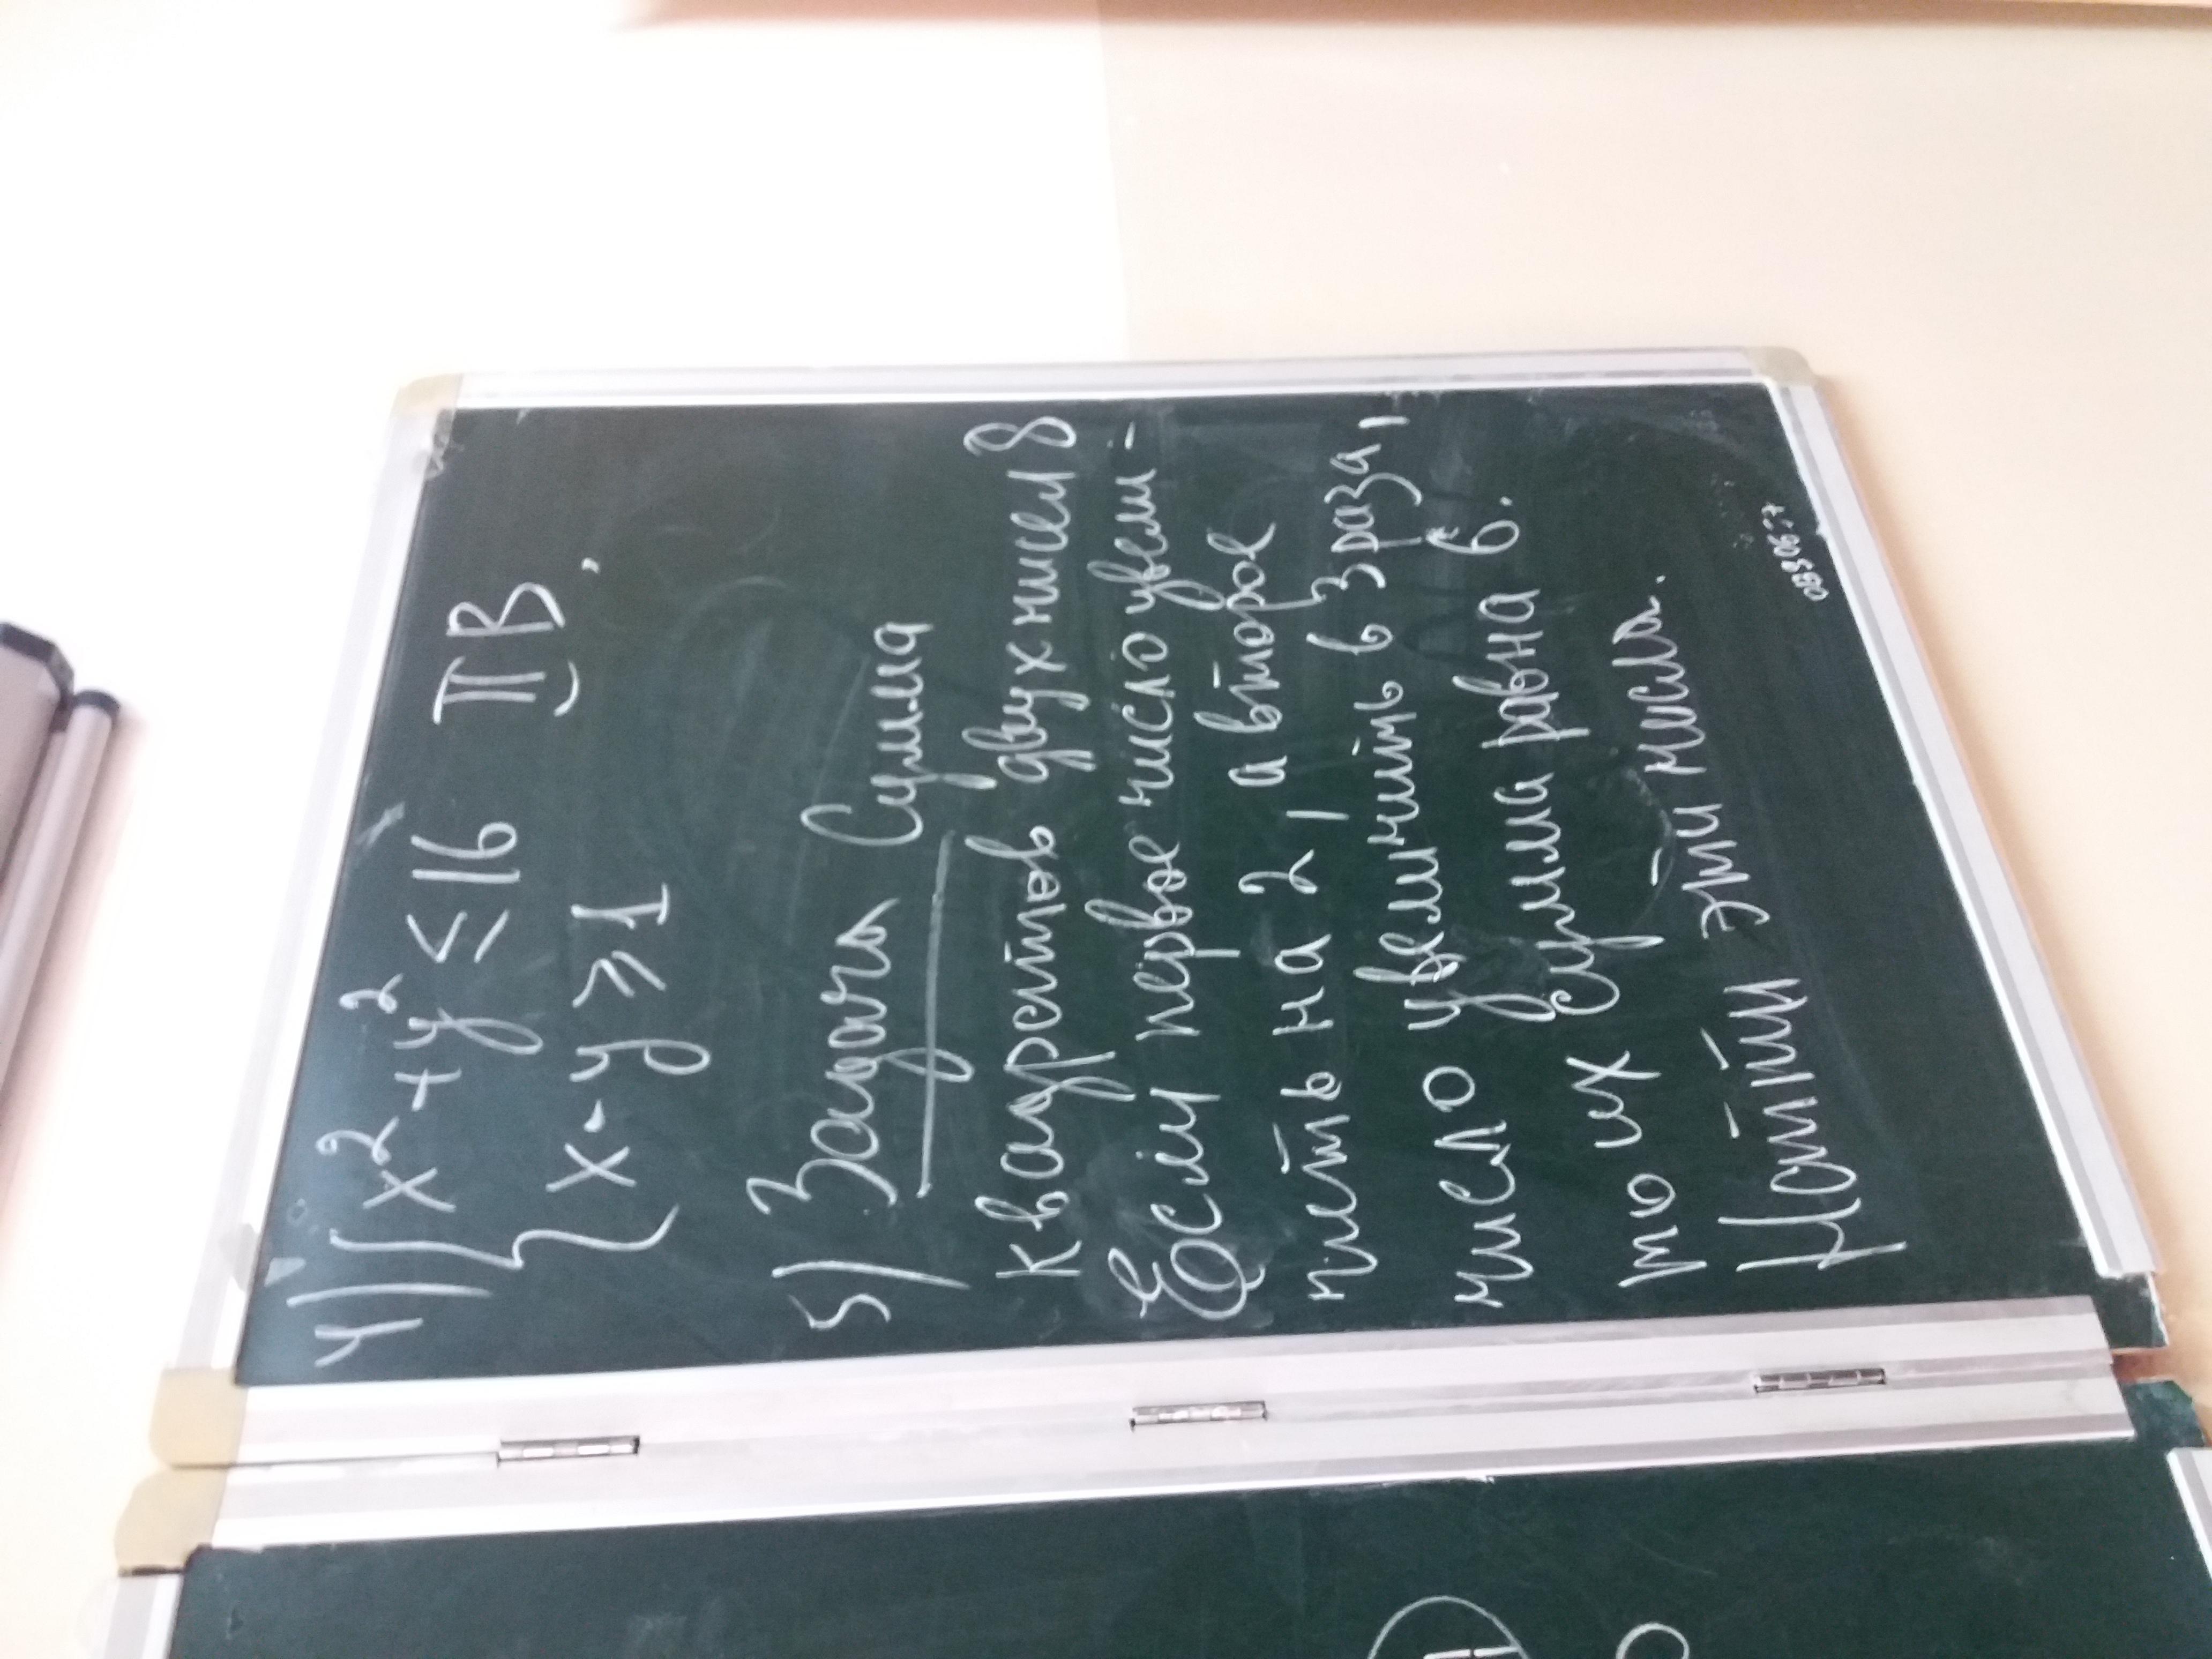 4) { x² + y² ≤ 16 II В.
x - y ≥ 1
5) Задача Сумма
квадратов двух чисел 8
Если первое число увели-
чить на 2, а второе
число увеличить в 3 раза,
то их сумма равна 6.
Найти эти числа.